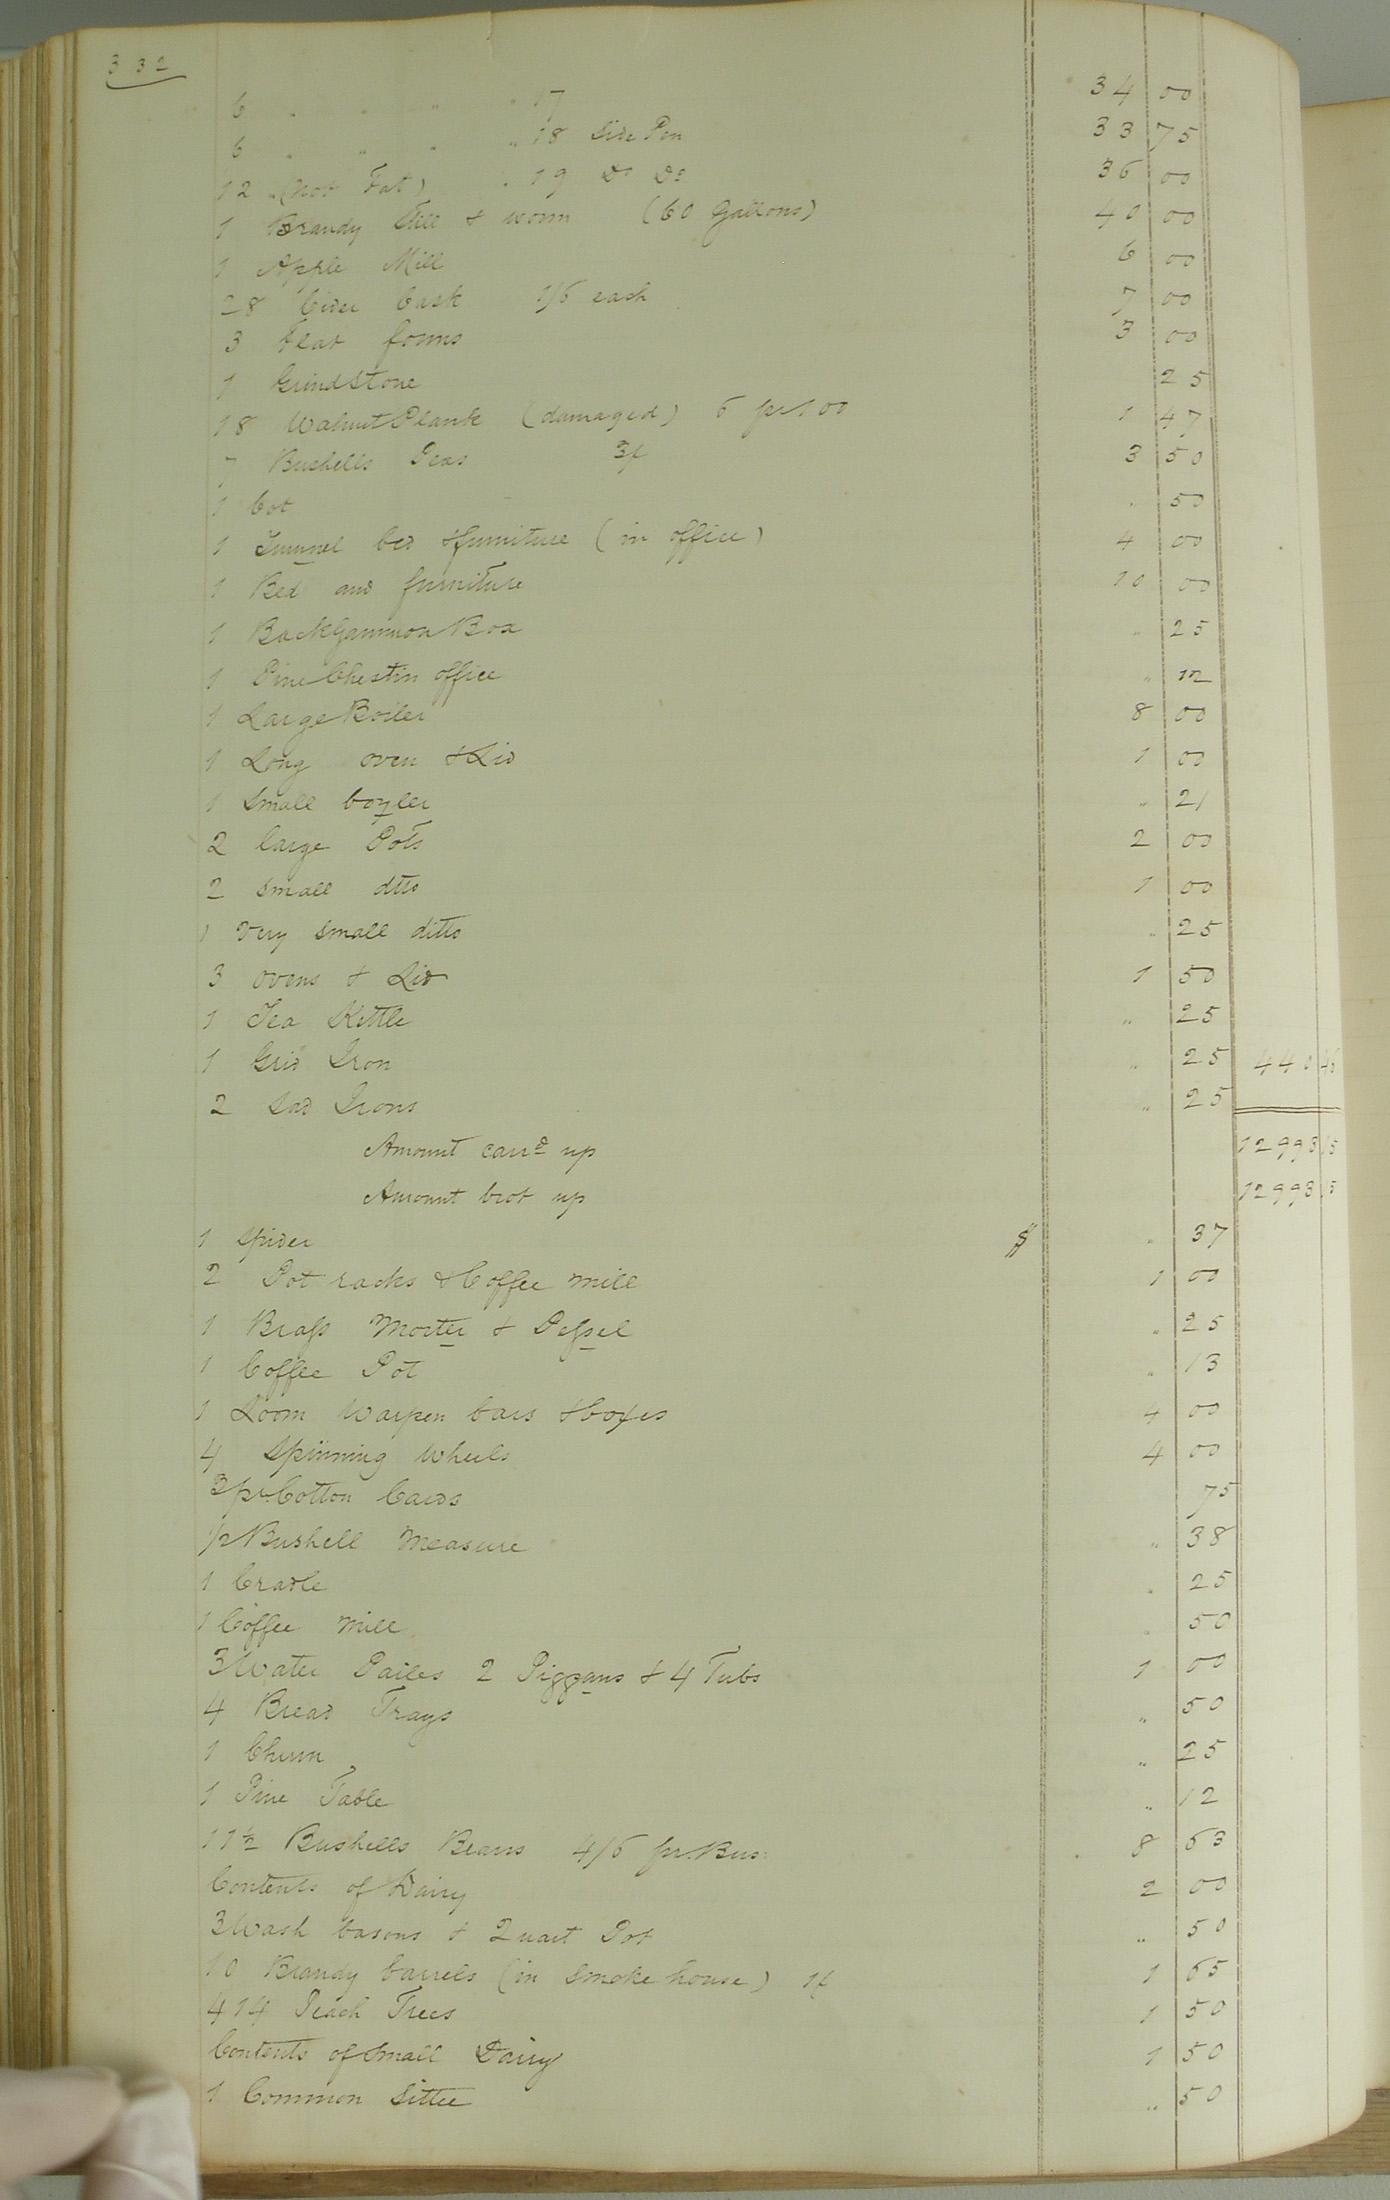 332
6 " " " " 17 34 00
6 " " " " 18 Side Pen 33 75
12 " (not Fat) " 19 Do Do 36 00
1 Brandy Still & worm (60 Gallons) 40 00
1 Apple Mill 6 00
28 Cider Cask 1/6 each 7 00
3 Flat forms 3 00
1 Grindstone 25
18 Walnut Plank (damaged) 6 pr 100 1 47
7 Bushells Peas 3/ 3 50
1 Cot " 50
1 bed & furniture (in office) 4 00
1 Bed and furniture 10 00
1 BackGammon Box " 25
1 Pine Chest in office " 12
1 Large Boiler 8 00
1 Long oven & Lid 1 00
1 Small boyler " 21
2 large Pots 2 00
2 small ditto 1 00
1 Very small ditto " 25
3 ovens & Lid 1 50
1 Tea Kettle " 25
1 Grid Iron " 25 440 46
2 Sad Irons " 25
Amount carrd up 12993 15
Amount brot up 12993 15
1 Spider $ " 37
2 Pot racks & Coffee mill 1 00
1 Brass Morter & Pessel " 25
1 Coffee Pot " 13
1 Loom Warpen bars & boxes 4 00
4 Spinning Wheels 4 00
3 pr Cotton Cards 75
1/2 Bushell Measure " 38
1 Cradle " 25
1 Coffee Mill " 50
3 Water Pailes 2 Piggans & 4 Tubs 1 00
4 Bread Trays " 50
1 Churn " 25
1 Pine Table " 12
11 1/2 Bushells Beans 4/6 pr. Bus: 8 63
Contents of Dairy 2 00
3 Wash basons & 2 uart Pot " 50
10 Brandy barrels (in Smoke house) 1/ 1 65
414 Peach Trees 1 50
Contents of Small Dairy 1 50
1 Common Sittee " 50